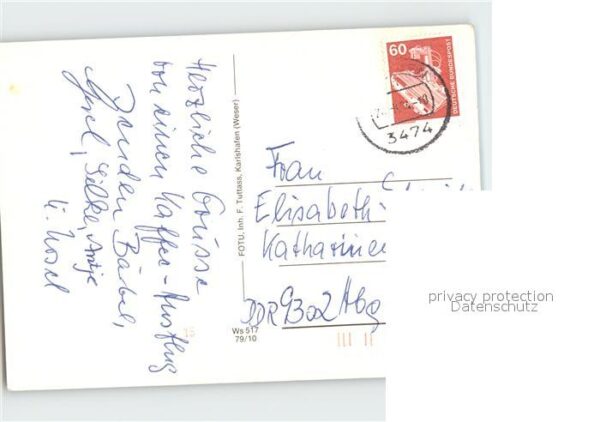 Herzliche Grüsse
von einem Kaffee-Ausflug
senden Bärbel,
Silke, Antje
u. Posel
FOTU, Inh. F. Tuttass, Karlshafen (Weser)
Ws 517
79/10
60
DEUTSCHE BUNDESPOST
3474
Frau
Elisabeth
Katharinen
DDR 9302 Abg
privacy protection
Datenschutz